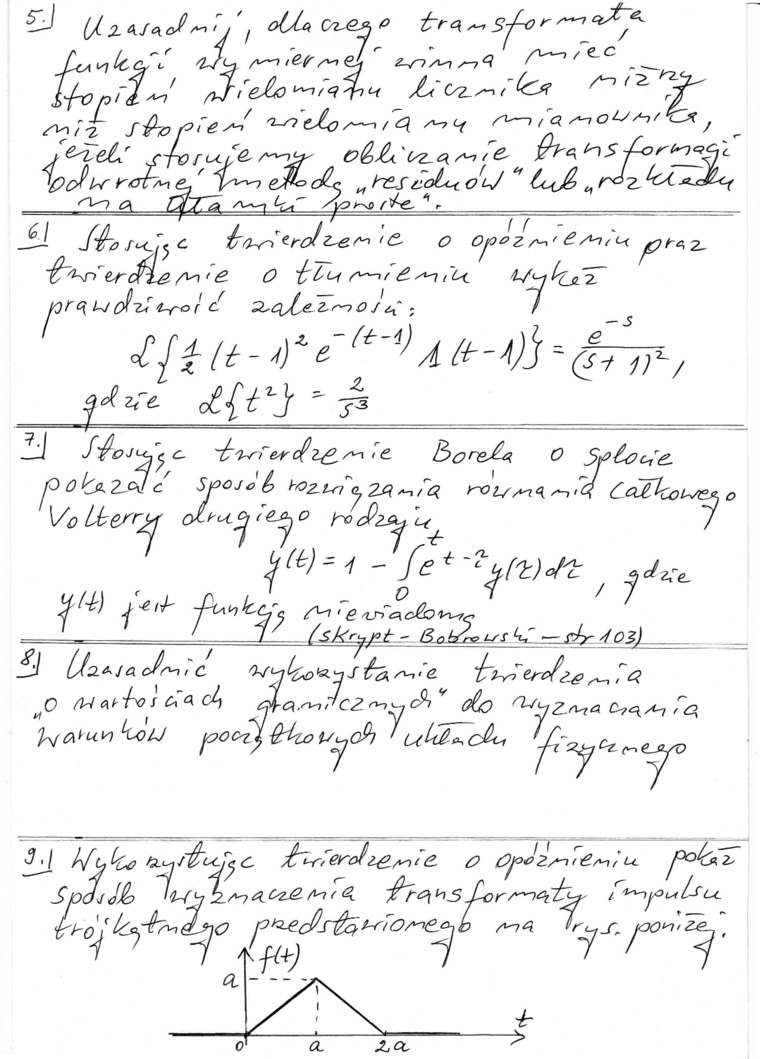 5.) Uzasadnij, dlaczego transformata
funkcji wymiernej winna mieć
stopień wielomianu licznika niższy
niż stopień wielomianu mianownika,
jeżeli stosujemy obliczanie transformacji
odwrotnej metodą „residuów" lub „rozkładu
na ułamki proste".
6.) Stosując twierdzenie o opóźnieniu oraz
twierdzenie o tłumieniu wykaż
prawdziwość zależności:
ℒ{1/2 (t-1)² e^-(t-1) 1(t-1)} = e^-s/(s+1)²,
gdzie ℒ{t²} = 2/s³
7.) Stosując twierdzenie Borela o splocie
pokazać sposób rozwiązania równania całkowego
Volterry drugiego rodzaju
y(t) = 1 - ∫₀ᵗ e^(t-τ) y(τ)dτ, gdzie
y(t) jest funkcją niewiadomą
(skrypt - Bobrowski - str 103)
8.) Uzasadnić wykorzystanie twierdzenia
„o wartościach granicznych" do wyznaczania
warunków początkowych układu fizycznego
9.) Wykorzystując twierdzenie o opóźnieniu pokaż
sposób wyznaczenia transformaty impulsu
trójkątnego przedstawionego na rys. poniżej.
f(t)
a
t
0 a 2a